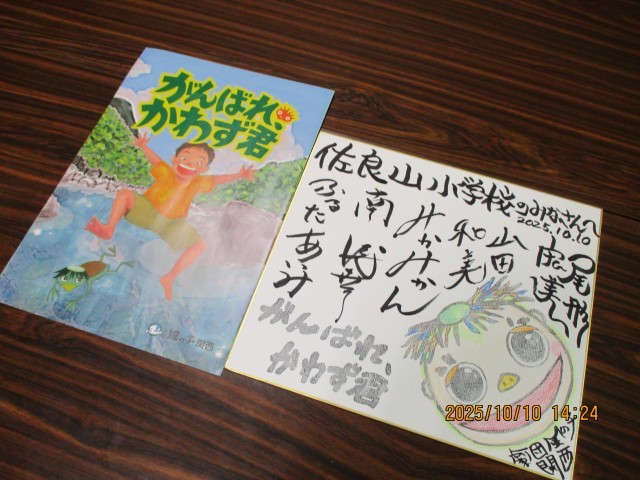 がんばれ
かわず君
風の子関西
佐良山小学校のみなさんへ
2025.10.10
尾形
山田
和美
みかみかん
南
ふるた あみ
がんばれ、
かわず君
劇団
関西
2025/10/10 14:24